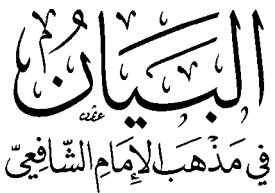 البَيَانُ
فِي مَذْهَبِ الإِمَامِ الشَّافِعِيِّ